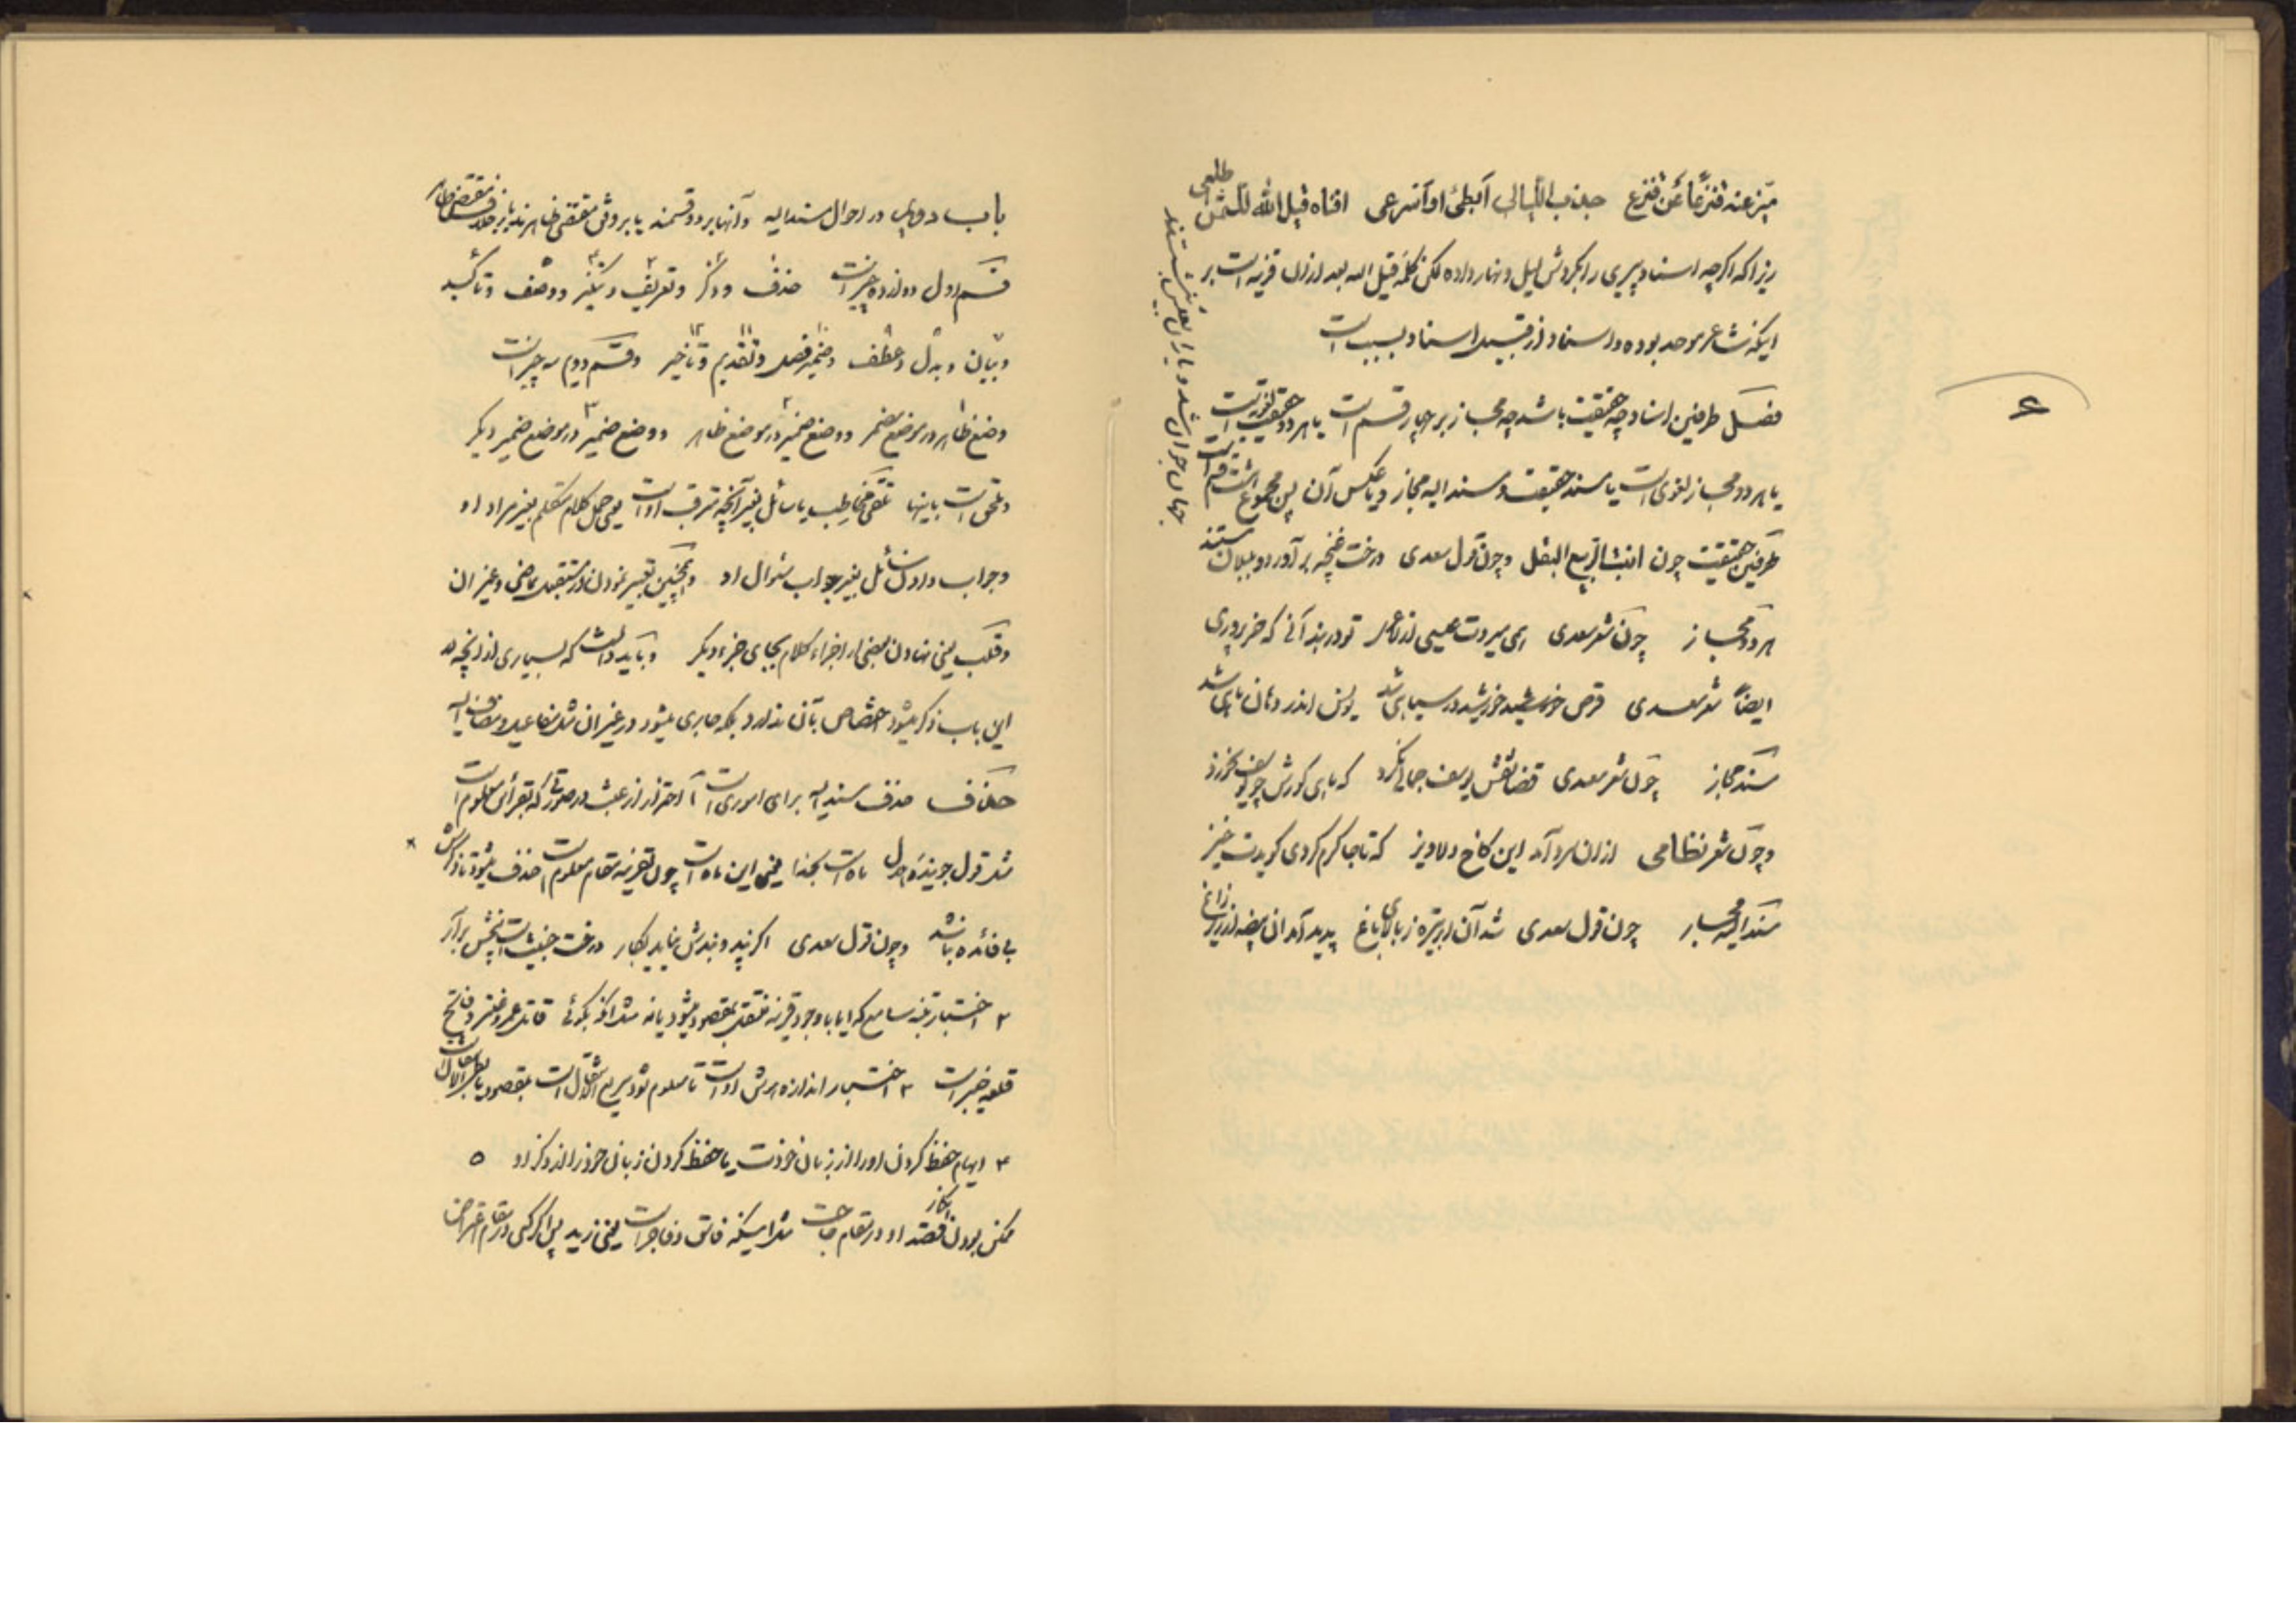 میّز عنه قنزعاً عن قنزع جذب اللیالی ابطئی او اسرعی افناه قیل الله للشمس اطلعی
زیرا که اگرچه اسناد پیری را بگردش لیل و نهار داده لکن کلمه قیل الله بعد از ان قرینه است بر
اینکه شاعر موحد بوده و اسناد از قبیل اسناد بسبب است
فصل طرفین اسناد چه حقیقت باشد چه مجاز بر چهار قسم است یا هر دو حقیقت لغویست
یا هر دو مجاز لغوی است یا مسند حقیقت و مسند الیه مجاز و یا عکس آن پس مجموع هشت قسم است
طرفین حقیقت چون انبت الربیع البقل و چون قول سعدی درخت غنچه برآورد و بلبلان مستند
جهان جوان شد و یاران بعیش بنشستند
هر دو مجاز چون شعر سعدی همی میردت عیسی از لاغری تو در بند آنی که خر پروری
ایضاً شعر سعدی قرص خورشید در سیاهی شد یونس اندر دهان ماهی شد
مسند مجاز چون شعر سعدی قضا نقش یوسف جمالی نکرد که ماهی گورش چو یونس نخورد
و چون شعر نظامی از ان سرد آمد این کاخ دلاویز که تا جا گرم کردی گویدت خیز
مسند الیه مجاز چون قول سعدی شد آن ابر تیره ز بالای باغ پدید آمد آن بیضه از زیر زاغ
۶
باب دویم در احوال مسند الیه و آنها بر دو قسمند یا بر وفق مقتضی ظاهرند یا بر خلاف مقتضی ظاهر
قسم اول دوازده چیز است حذف و ذکر و تعریف و تنکیر و وصف و تاکید
و بیان و بدل و عطف و ضمیر فصل و تقدیم و تاخیر و قسم دویم سه چیز است
وضع ظاهر در موضع مضمر و وضع ضمیر در موضع ظاهر و وضع ضمیر در موضع ضمیر دیگر
و ملحق است باینها تلقی مخاطب یا سائل بغیر آنچه مترقب او است یعنی حمل کلام متکلم بغیر مراد او
و جواب دادن سائل بغیر جواب سئوال او و همچنین تعبیر نمودن از مستقبل بماضی و غیر ان
و قلب یعنی نهادن بعضی از اجزاء کلام بجای جزء دیگر و باید دانست که بسیاری از آنچه در
این باب ذکر میشود اختصاص بآن ندارد بلکه جاری میشود در غیر ان مثل مفاعیل و مضاف الیه
حذف حذف مسند الیه برای اموری است ۱ احتراز از عبث در صورتی که بقرائن معلوم است
مثل قول جوینده هلال ماه است بخدا یعنی این ماه است چون بقرینه مقام معلوم است حذف میشود تا ذکرش
بی فائده نباشد و چون قول سعدی اگر پند و بندش نیاید بکار درخت خبیث است بیخش برآر
۲ اختبار تنبه سامع که ایا با وجود قرینه منتقل بمقصود میشود یا نه مثل آنکه بگوئی قاتل عمرو و عنتر و فاتح
قلعه خیبر است ۳ اختبار اندازه هوش او است تا معلوم شود سریع الانتقال است بمقصود یا بطیء الانتقال است
۴ ایهام حفظ کردن او را از زبان خودت یا حفظ کردن زبان خود را از ذکر او ۵
ممکن بودن انکار قصد او در مقام حاجت مثل اینکه فاسق و فاجر است یعنی زید پس اگر کسی در مقام اعتراض